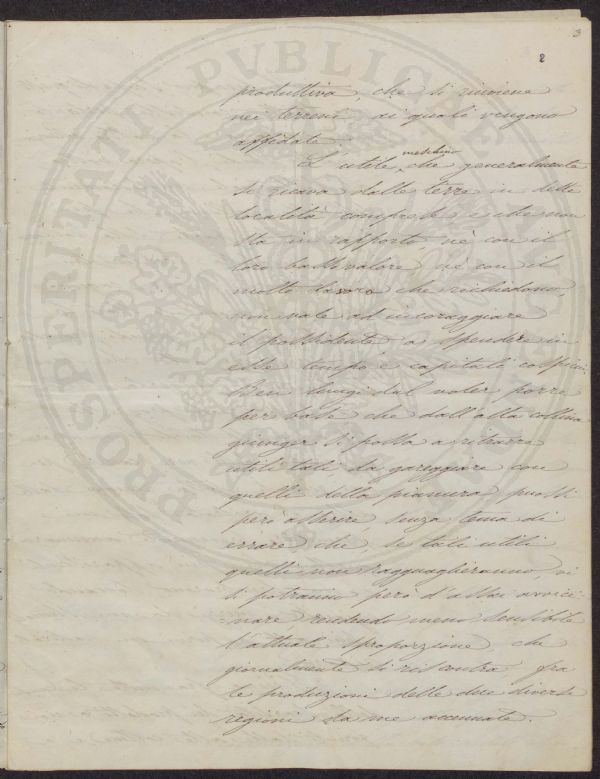 3
2
produttiva, che si rinviene
nei terreni, ai quali vengono
affidate.
L'utile meschino che generalmente
si ricava dalle terre in dette
località comprese, e che non
sta in rapporto nè con il
loro basso valore, nè con il
molto lavoro che richiedono,
non vale ad incoraggiare
il possidente a spendere in
esse tempo e capitali cospicui.
Ben lungi dal voler porre
per base che dall'alta collina
giunger si possa a ritrarre
utili tali, da gareggiare con
quelli della pianura, puossi
però asserire senza tema di
errare che, se tali utili
quelli non ragguaglieranno, vi
si potranno però d'assai avvici-
nare rendendo meno sensibile
l'attuale sproporzione, che
giornalmente si riscontra fra
le produzioni delle due diverse
regioni da me accennate.
PROSPERITATI PVBLICAE